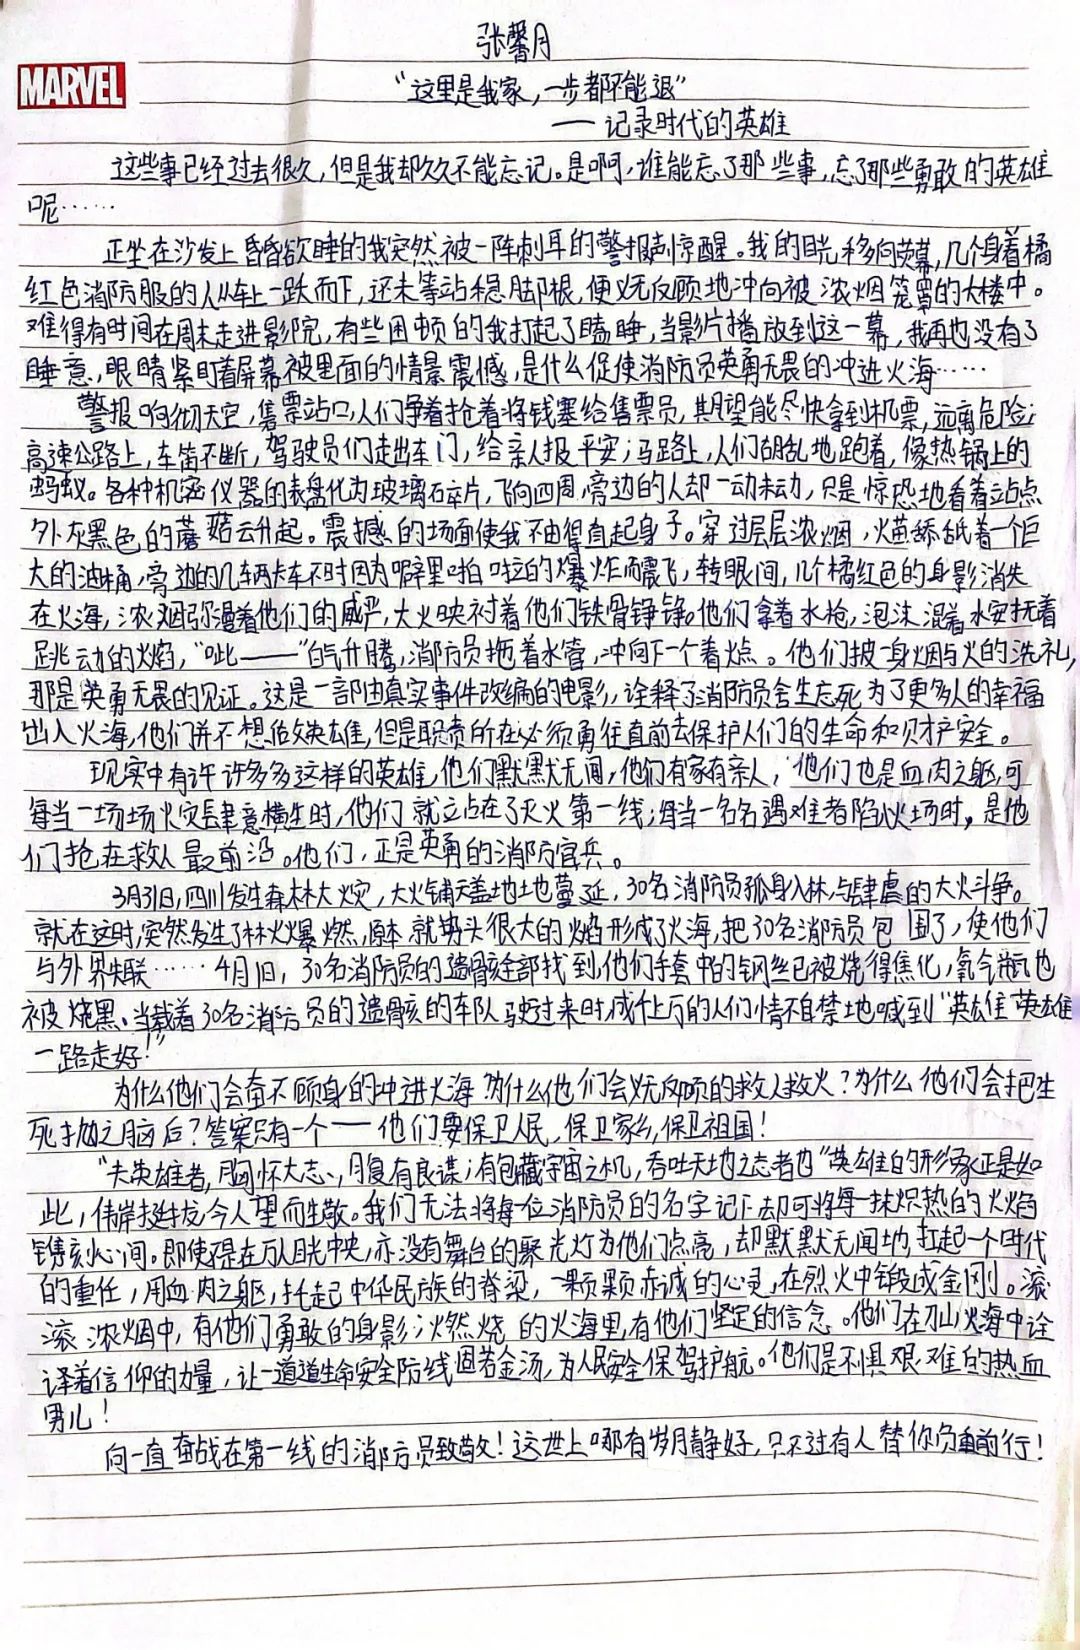 张馨月
MARVEL
“这里是我家，一步都不能退”
——记录时代的英雄
这些事已经过去很久，但是我却久久不能忘记。是啊，谁能忘了那些事，忘了那些勇敢的英雄
呢……
正坐在沙发上昏昏欲睡的我突然被一阵刺耳的警报声惊醒。我的目光移向荧幕，几个身着橘
红色消防服的人从车上一跃而下，还未等站稳脚跟，便义无反顾地冲向被浓烟笼罩的大楼中。
难得有时间在周末走进影院，有些困顿的我打起了瞌睡，当影片播放到这一幕，我再也没有了
睡意，眼睛紧盯着屏幕被里面的情景震憾，是什么促使消防员英勇无畏的冲进火海……
警报响彻天空，售票站口，人们争着抢着将钱塞给售票员，期望能尽快拿到机票，远离危险；
高速公路上，车笛不断，驾驶员们走出车门，给亲人报平安；马路上，人们胡乱地跑着，像热锅上的
蚂蚁。各种机密仪器的表盘化为玻璃碎片，飞向四周，旁边的人却一动未动，只是惊恐地看着站点
外灰黑色的蘑菇云升起。震撼的场面使我不由得直起身子。穿过层层浓烟，火苗舔舐着一个巨
大的油桶，旁边的几辆卡车不时因为噼里啪啦的爆炸而震飞，转眼间，几个橘红色的身影消失
在火海，浓烟弥漫着他们的威严，大火映衬着他们铁骨铮铮。他们拿着水枪，泡沫混着水安抚着
跳动的火焰，“呲——”白气升腾，消防员拖着水管，冲向下一个着火点。他们披一身烟与火的洗礼，
那是英勇无畏的见证。这是一部由真实事件改编的电影，诠释了消防员舍生忘死为了更多人的幸福
出入火海，他们并不想做英雄，但是职责所在必须勇往直前去保护人们的生命和财产安全。
现实中有许许多多这样的英雄，他们默默无闻，他们有家有亲人，他们也是血肉之躯，可
每当一场场火灾肆意横生时，他们就站在了灭火第一线；每当一名名遇难者陷入火场时，是他
们抢在救人最前沿。他们，正是英勇的消防官兵。
3月31日，四川发生森林大火灾，大火铺天盖地地蔓延，30名消防员孤身入林，与肆虐的大火斗争。
就在这时，突然发生了林火爆燃，原本就势头很大的火焰形成了火海，把30名消防员包围了，使他们
与外界失联……4月1日，30名消防员的遗骸全部找到，他们手套中的钢丝已被烧得焦化，氧气瓶也
被烧黑、当载着30名消防员的遗骸的车队驶过来时，成千上万的人们情不自禁地喊到“英雄英雄
一路走好！”
为什么他们会奋不顾身的冲进火海？为什么他们会义无反顾的救人救火？为什么他们会把生
死抛之脑后？答案只有一个——他们要保卫人民，保卫家乡，保卫祖国！
“夫英雄者，胸怀大志，腹有良谋；有包藏宇宙之机，吞吐天地之志者也”英雄的形象正是如
此，伟岸挺拔令人望而生敬。我们无法将每一位消防员的名字记下却可将每一抹炽热的火焰
镌刻心间。即使不是在万人目光中央，亦没有舞台的聚光灯为他们点亮，却默默无闻地，扛起一个时代
的重任，用血肉之躯，托起中华民族的脊梁，一颗颗赤诚的心灵，在烈火中锻成金刚。滚
滚浓烟中，有他们勇敢的身影；火燃烧的火海里，有他们坚定的信念。他们在刀山火海中诠
译着信仰的力量，让一道道生命安全防线固若金汤，为人民安全保驾护航。他们是不惧艰难的热血
男儿！
向一直奋战在第一线的消防员致敬！这世上哪有岁月静好，只不过有人替你负重前行！